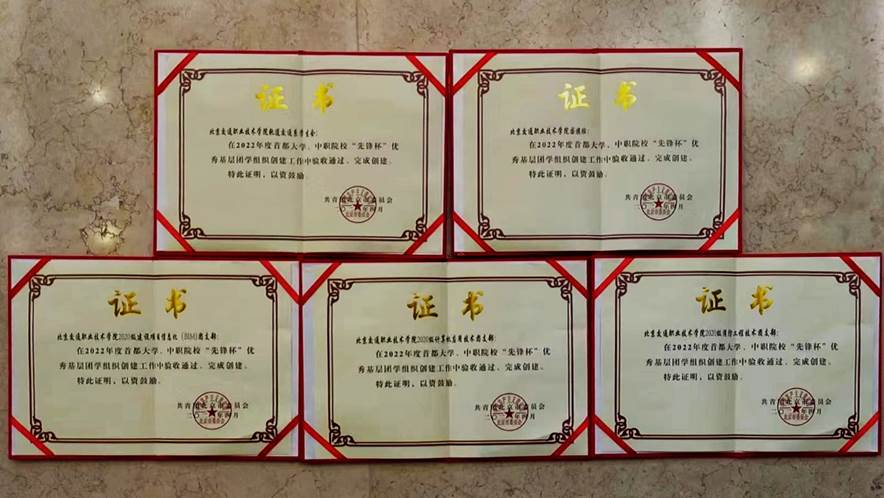 证书
北京交通职业技术学院轨道交通系学生会:
在2022年度首都大学、中职院校“先锋杯”优
秀基层团学组织创建工作中验收通过、完成创建。
特此证明,以资鼓励。
共青团北京市委员会
证书
北京交通职业技术学院
在2022年度首都大学、中职院校“先锋杯”优
秀基层团学组织创建工作中验收通过、完成创建。
特此证明,以资鼓励。
共青团北京市委员会
证书
北京交通职业技术学院2020级建设项目信息化(BIM)团支部:
在2022年度首都大学、中职院校“先锋杯”优
秀基层团学组织创建工作中验收通过、完成创建。
特此证明,以资鼓励。
共青团北京市委员会
证书
北京交通职业技术学院2020级计算机应用技术团支部:
在2022年度首都大学、中职院校“先锋杯”优
秀基层团学组织创建工作中验收通过、完成创建。
特此证明,以资鼓励。
共青团北京市委员会
证书
北京交通职业技术学院2020级消防工程技术团支部:
在2022年度首都大学、中职院校“先锋杯”优
秀基层团学组织创建工作中验收通过、完成创建。
特此证明,以资鼓励。
共青团北京市委员会